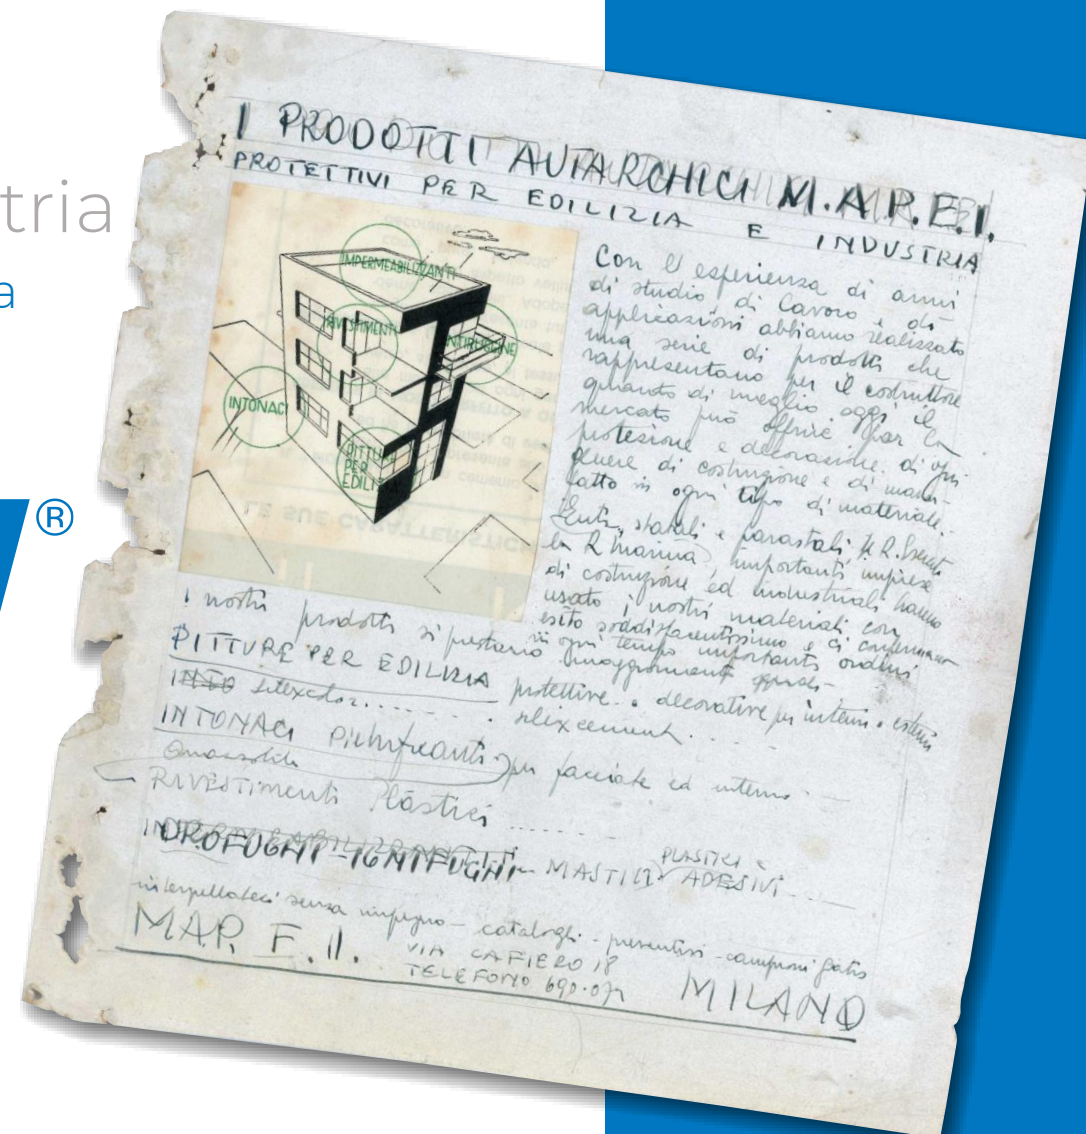 tria
a
®
I PRODOTTI AUTARCHICI M.A.P.E.I.
PROTETTIVI PER EDILIZIA E INDUSTRIA
IMPERMEABILIZZANTI
RIVESTIMENTI
ANTIRUGGINE
INTONACI
PITTURE
PER
EDILIZIA
LE SUE CARATTERISTICHE
Con l'esperienza di anni
di studio di lavoro e di
applicazioni abbiamo realizzato
una serie di prodotti che
rappresentano per il costruttore
quanto di meglio oggi il
mercato può offrire per la
protezione e decorazione di ogni
genere di costruzione e di manu-
fatto in ogni tipo di materiale.
Enti statali e parastatali, il R.
la R Marina, importanti imprese
di costruzione ed industriali hanno
usato i nostri materiali con
esito soddisfacentissimo e ci
in ogni tempo importanti ordini
i nostri prodotti si
PITTURE PER EDILIZIA protettive e decorative per interni e esterni
silexcolor........ silexcement.....
INTONACI Pietrificanti per facciate ed interno
RIVESTIMENTI Plastici .......
IDROFUGHI - IGNIFUGHI - MASTICI PLASTICI e ADESIVI
interpellateci senza impegno - cataloghi - preventivi - campioni gratis
MAP. E. I. VIA CAFIERO 18
TELEFONO 690-071 MILANO